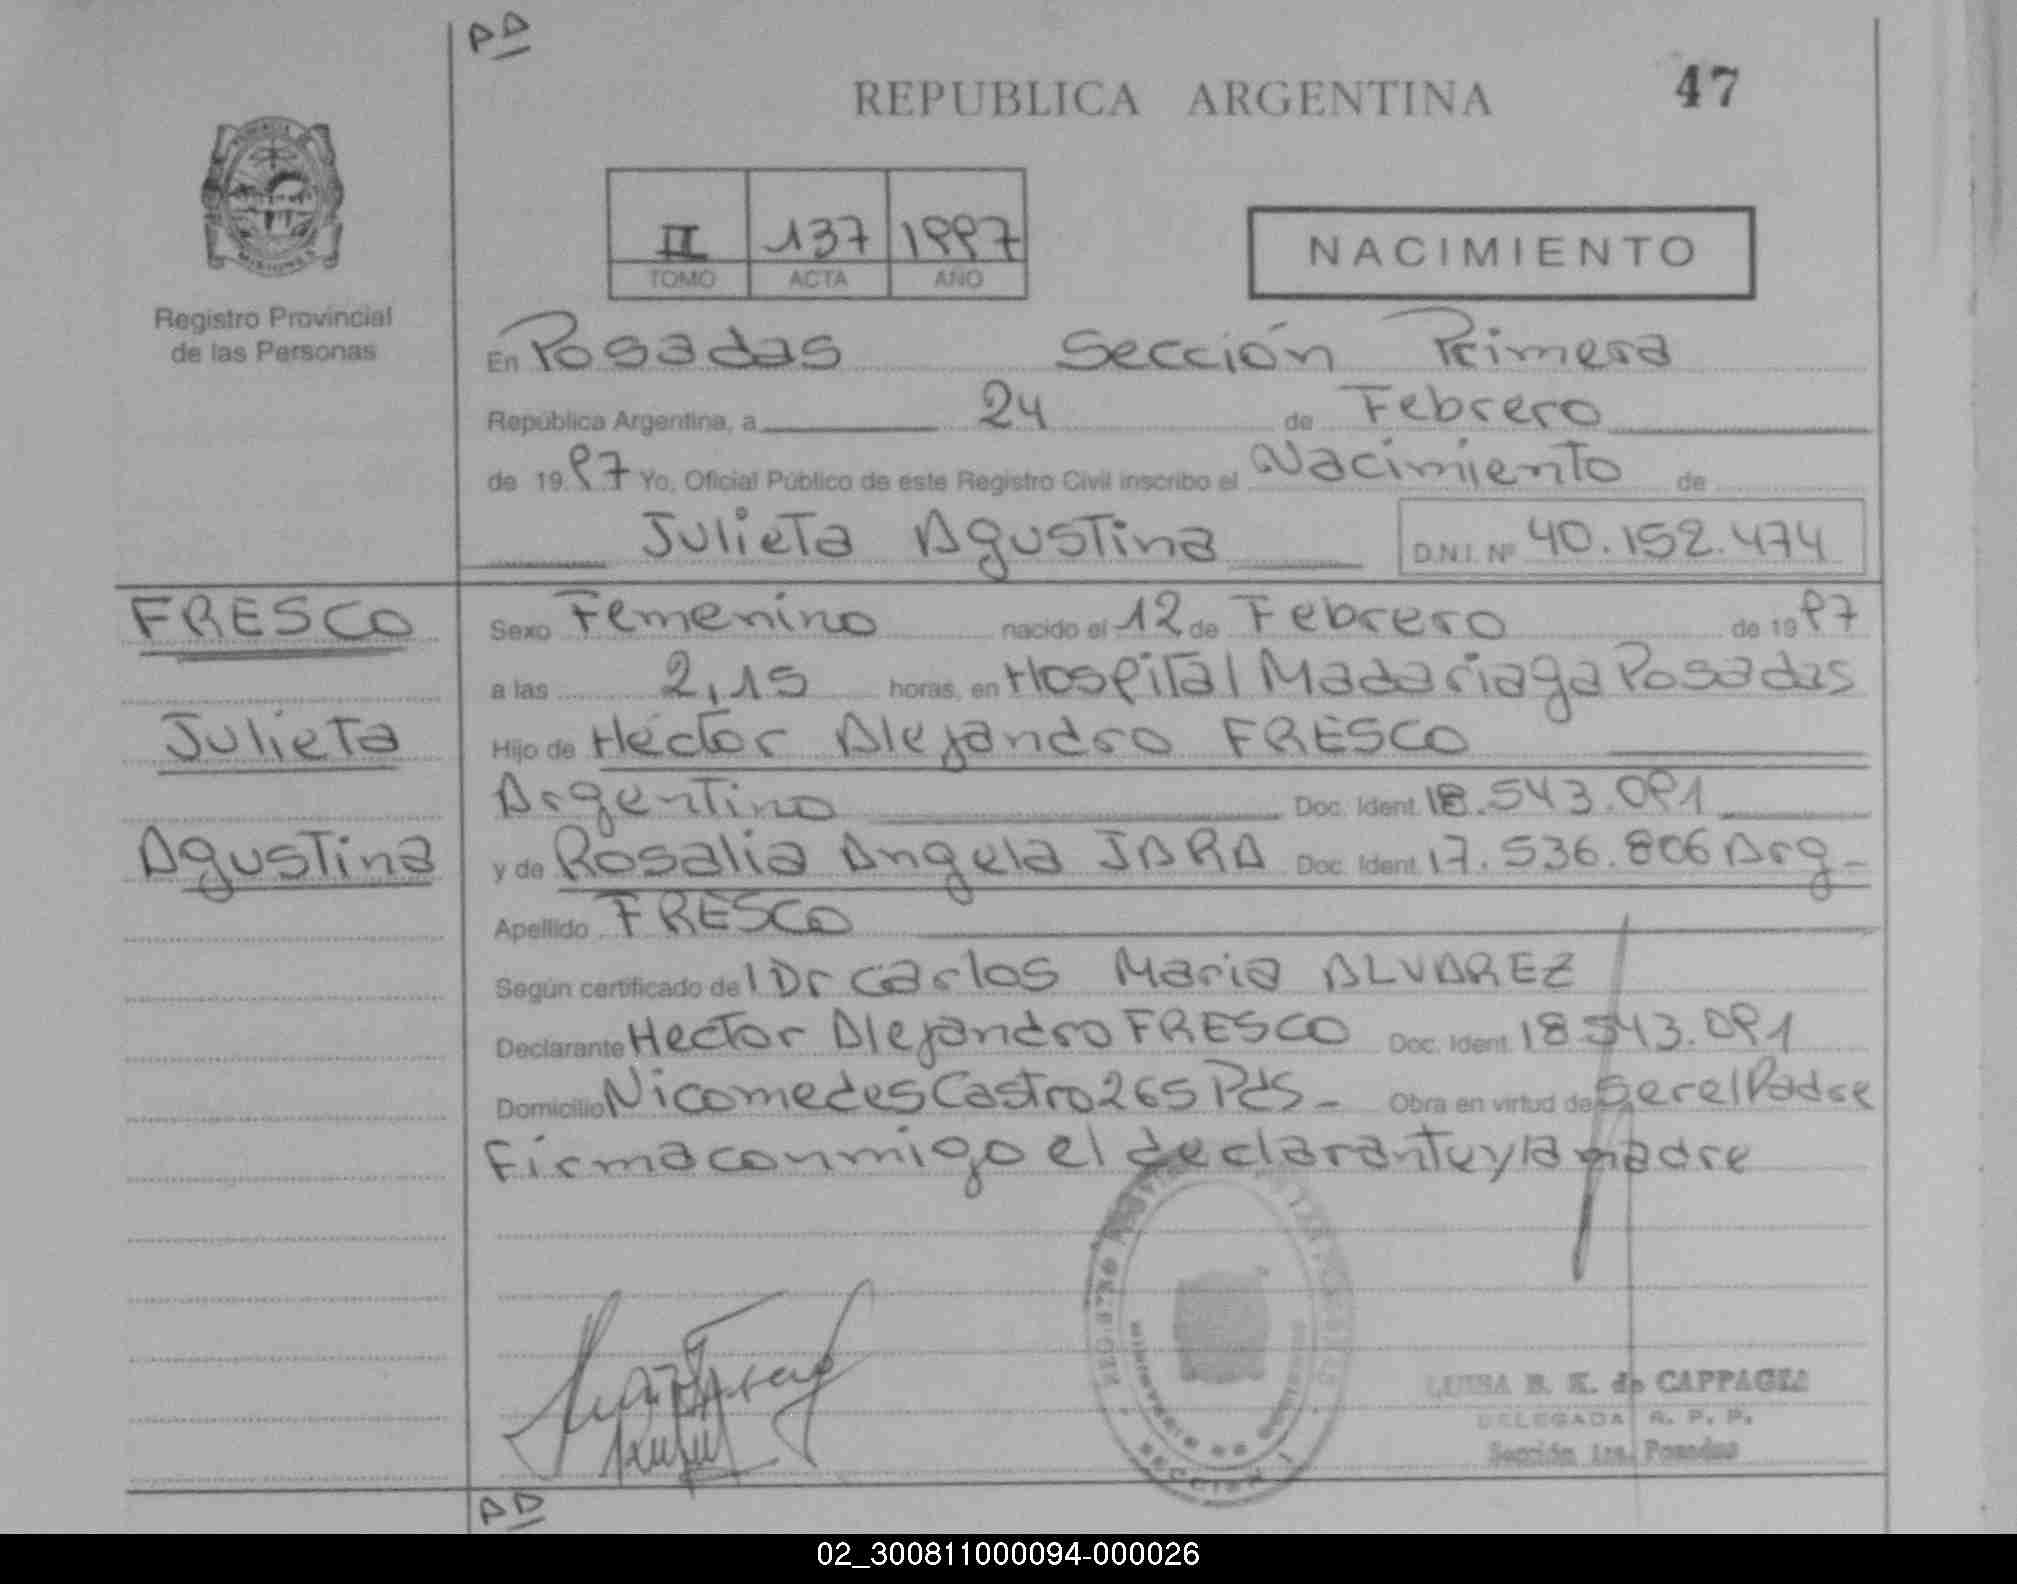 AD
REPUBLICA ARGENTINA
47
II 137 1997
TOMO ACTA AÑO
NACIMIENTO
Registro Provincial
de las Personas
En Posadas Sección Primera
República Argentina, a 24 de Febrero
de 1997 Yo, Oficial Público de este Registro Civil inscribo el Nacimiento de
Julieta Agustina D.N.I. Nº 40.152.474
FRESCO
Julieta
Agustina
Sexo Femenino nacido el 12 de Febrero de 1997
a las 2,15 horas, en Hospital Madariaga Posadas
Hijo de Héctor Alejandro FRESCO
Argentino Doc. Ident. 18.543.091
y de Rosalia Angela JARA Doc. Ident. 17.536.806 Arg-
Apellido FRESCO
Según certificado del Dr Carlos Maria ALVAREZ
Declarante Hector Alejandro FRESCO Doc. Ident. 18.543.091
Domicilio Nicomedes Castro 265 Pds- Obra en virtud de ser el Padre
Firma conmigo el declarante y la madre
LUISA B. K. de
DELEGADA R. P. P.
Sección 1ra. Posadas
SECCION 1
AD
02_300811000094-000026